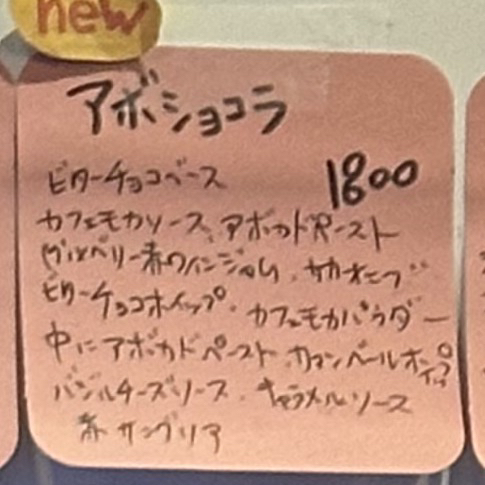 new
アボショコラ
ビターチョコベース 1800
カフェモカソース、アボカドペースト
ベリー赤ワインジャム、カカオニブ
ビターチョコホイップ、カフェモカパウダー
中にアボカドペースト、カマンベールホイップ
バジルチーズソース、キャラメルソース
赤サングリア